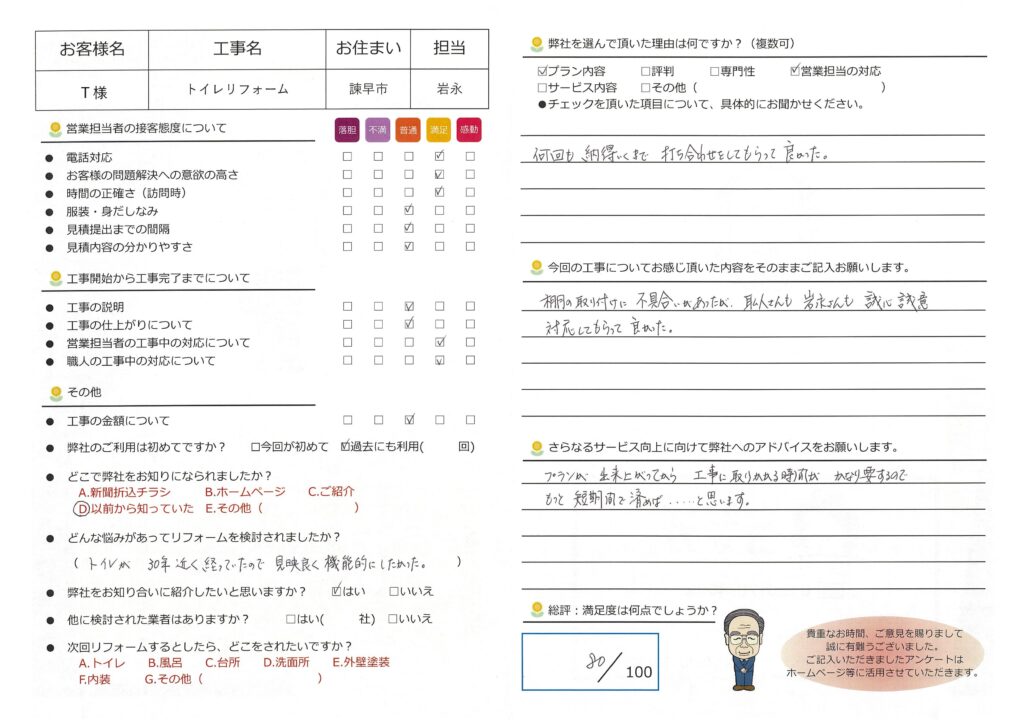 お客様名 工事名 お住まい 担当
T様 トイレリフォーム 諫早市 岩永
営業担当者の接客態度について 落胆 不満 普通 満足 感動
● 電話対応 □ □ □ ☑ □
● お客様の問題解決への意欲の高さ □ □ □ ☑ □
● 時間の正確さ(訪問時) □ □ □ ☑ □
● 服装・身だしなみ □ □ ☑ □ □
● 見積提出までの間隔 □ □ ☑ □ □
● 見積内容の分かりやすさ □ □ ☑ □ □
工事開始から工事完了までについて
● 工事の説明 □ □ ☑ □ □
● 工事の仕上がりについて □ □ ☑ □ □
● 営業担当者の工事中の対応について □ □ □ ☑ □
● 職人の工事中の対応について □ □ □ ☑ □
その他
● 工事の金額について □ □ ☑ □ □
● 弊社のご利用は初めてですか? □今回が初めて ☑過去にも利用( 回)
● どこで弊社をお知りになられましたか?
A.新聞折込チラシ B.ホームページ C.ご紹介
D以前から知っていた E.その他( )
● どんな悩みがあってリフォームを検討されましたか?
( トイレが 30年近く経っていたので 見映良く機能的にしたかった。 )
● 弊社をお知り合いに紹介したいと思いますか? ☑はい □いいえ
● 他に検討された業者はありますか? □はい( 社) □いいえ
● 次回リフォームするとしたら、どこをされたいですか?
A.トイレ B.風呂 C.台所 D.洗面所 E.外壁塗装
F.内装 G.その他( )
弊社を選んで頂いた理由は何ですか?(複数可)
☑プラン内容 □評判 □専門性 ☑営業担当の対応
□サービス内容 □その他( )
●チェックを頂いた項目について、具体的にお聞かせください。
何回も 納得いくまで 打ち合わせをしてもらって 良かった。
今回の工事についてお感じ頂いた内容をそのままご記入お願いします。
棚の取り付けに 不具合いがあったが、職人さんも 岩永さんも 誠心誠意
対応してもらって 良かった。
さらなるサービス向上に向けて弊社へのアドバイスをお願いします。
プランが 出来上がってから 工事に取りかかる時間が かなり要するので
もっと 短期間で済めば……と思います。
総評:満足度は何点でしょうか?
80/100
貴重なお時間、ご意見を賜りまして
誠に有難うございました。
ご記入いただきましたアンケートは
ホームページ等に活用させていただきます。